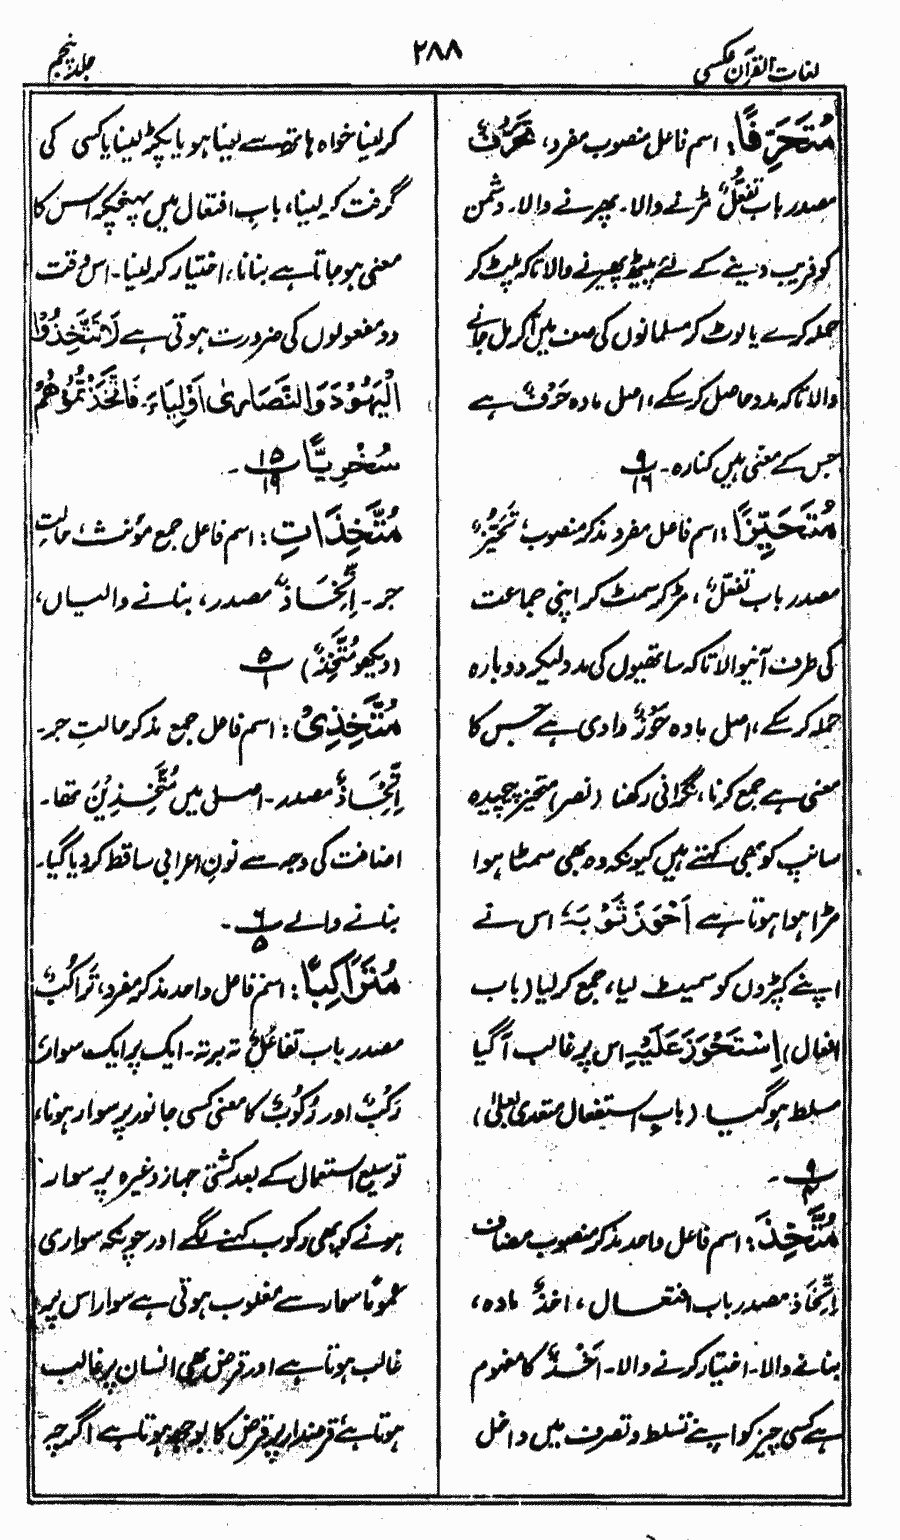 لغات القرآن عکسی
۲۸۸
جلد پنجم
مُتَحَرِّفًا: اسم فاعل منصوب مفرد، تَحَرُّفٌ
مصدر باب تَفَعُّلٌ مڑنے والا۔ پھرنے والا۔ دشمن
کو فریب دینے کے لئے پیٹھ پھیرنے والا تاکہ پلٹ کر
حملہ کرے یا لوٹ کر مسلمانوں کی صف میں آکر مل جانے
والا تاکہ مدد حاصل کرسکے، اصل مادہ حَرْفٌ ہے
جس کے معنی ہیں کنارہ۔ ۹/۱۶
مُتَحَيِّزًا: اسم فاعل مفرد مذکر منصوب، تَحَيُّزٌ
مصدر باب تفعّل، مڑ کر سمٹ کر اپنی جماعت
کی طرف آنیوالا تاکہ ساتھیوں کی مدد لیکر دوبارہ
حملہ کرسکے، اصل مادہ حَوْزٌ وادی ہے جس کا
معنی ہے جمع کرنا، نگرانی رکھنا (نصر) متحیز پیچیدہ
سانپ کو بھی کہتے ہیں کیونکہ وہ بھی سمٹا ہوا
مڑا ہوا ہوتا ہے اَحْوَزَ ثَوْبَهٗ اس نے
اپنے کپڑوں کو سمیٹ لیا، جمع کرلیا (باب
افعال) اِسْتَحْوَزَ عَلَيْهِ اس پر غالب آگیا
مسلط ہوگیا (باب استفعال متعدی بعلیٰ)
۹/۴ ۔
مُتَّخِذَ: اسم فاعل واحد مذکر منصوب مضاف
اِتِّخَاذ مصدر باب افتعال، اخذٌ مادہ،
بنانے والا۔ اختیار کرنے والا۔ اَخْذٌ کا مفہوم
ہے کسی چیز کو اپنے تسلط و تصرف میں داخل
کرلینا خواہ ہاتھ سے لینا ہو یا پکڑ لینا یا کسی کی
گرفت کرلینا، باب افتعال میں پہنچکر اس کا
معنی ہوجاتا ہے بنانا، اختیار کرلینا۔ اس وقت
دو مفعولوں کی ضرورت ہوتی ہے لَا تَتَّخِذُوا
الْيَهُوْدَ وَالنَّصَارٰى اَوْلِيَاءَ۔ فَاتَّخَذْتُمُوْهُمْ
سُخْرِيًّا ۱۵/۱۹ ۔
مُتَّخِذَاتِ: اسم فاعل جمع مؤنث، حالتِ
جر۔ اِتِّخَاذٌ مصدر، بنانے والیاں،
(دیکھو مُتَّخِذٌ) ۵/۱
مُتَّخِذِىْ: اسم فاعل جمع مذکر حالتِ جر۔
اِتِّخَاذٌ مصدر۔ اصل میں مُتَّخِذِيْنَ تھا۔
اضافت کی وجہ سے نونِ اعرابی ساقط کردیا گیا۔
بنانے والے ۶/۵ ۔
مُتَرَاكِبًا: اسم فاعل واحد مذکر مفرد، تَرَاكُبٌ
مصدر باب تفاعُلٌ تہ برتہ۔ ایک پر ایک سوار،
رَكْبٌ اور رُكُوْبٌ کا معنی کسی جانور پر سوار ہونا،
توسیع استعمال کے بعد کشتی جہاز وغیرہ پر سوار
ہونے کو بھی رکوب کہنے لگے اور چونکہ سواری
عمومًا سوار سے مغلوب ہوتی ہے سوار اس پر
غالب ہوتا ہے اور قرض بھی انسان پر غالب
ہوتا ہے قرضدار پر قرض کا بوجھ ہوتا ہے اگرچہ